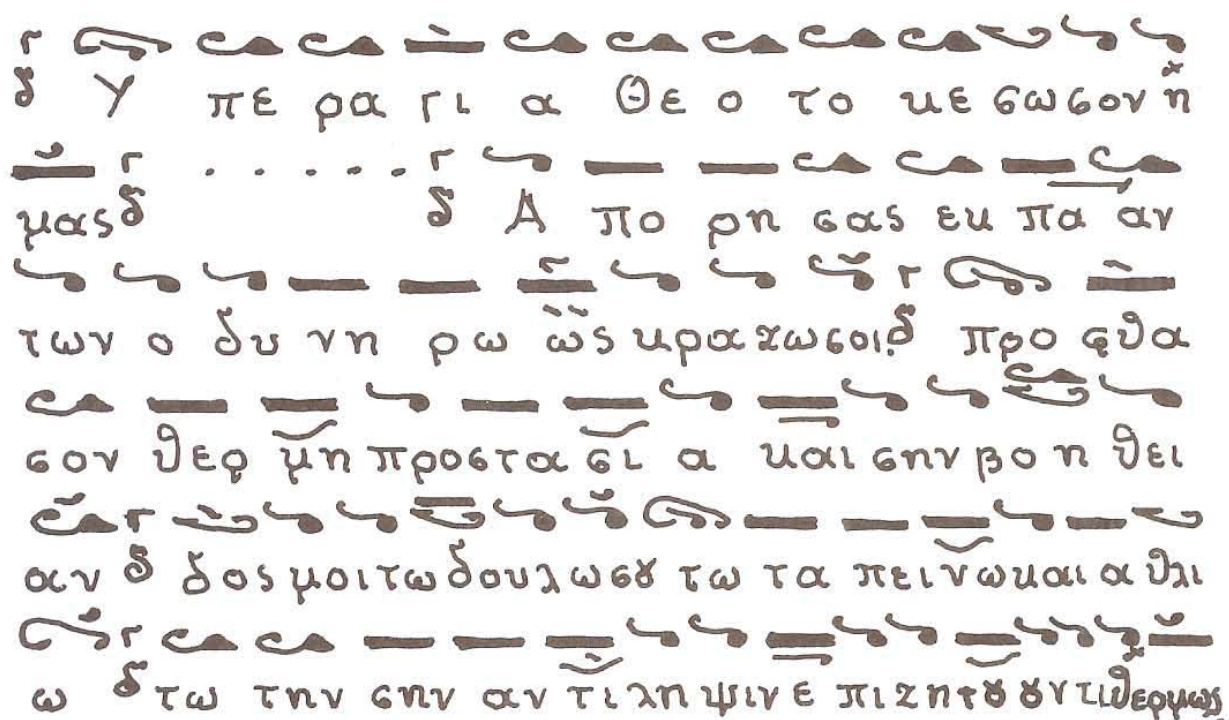 δ Υ πε ρα γι α Θε ο το κε σωσον η
μας δ . . . . . . δ Α πο ρη σας εκ πα αν
των ο δυ νη ρω ως κραζωσοι. δ προ φθα
σον θερ μη προστασι α και σην βο η θει
αν δ δος μοι τω δουλω σȣ τω τα πεινω και α θλι
ω δ τω την σην αν τι ληψιν ε πι ζητȣ ȣν τι θερμως